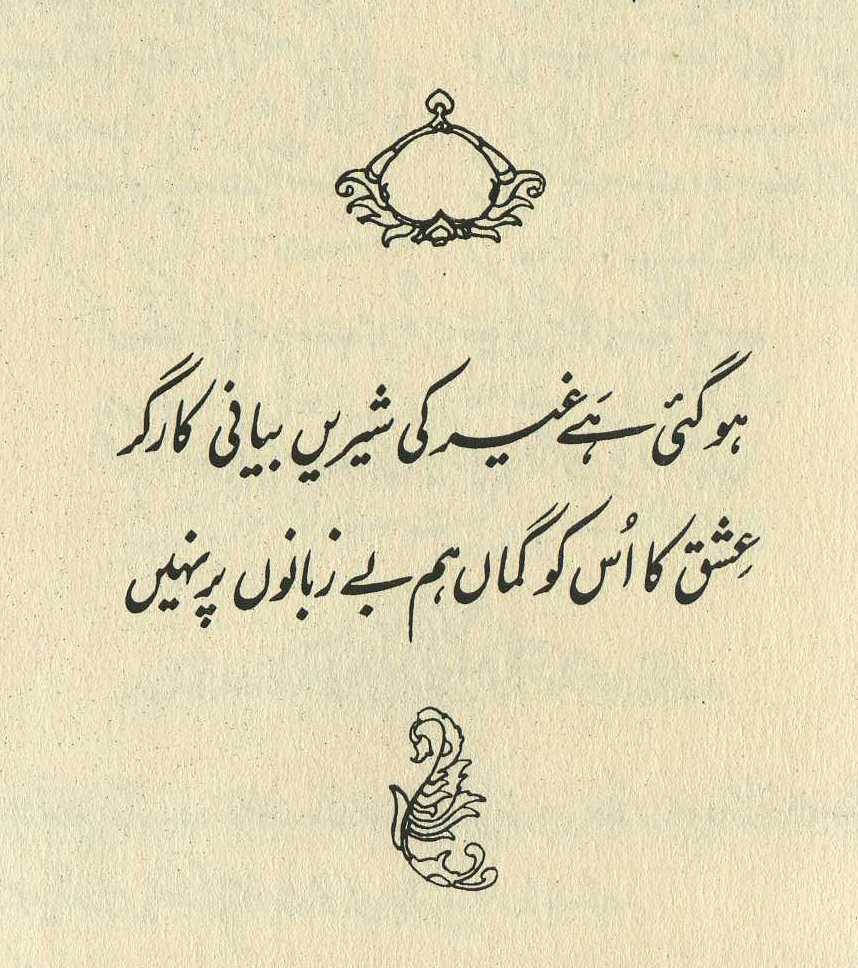 ہو گئی ہَے غیر کی شیریں بیانی کارگر
عِشق کا اُس کو گماں ہم بے زبانوں پر نہیں